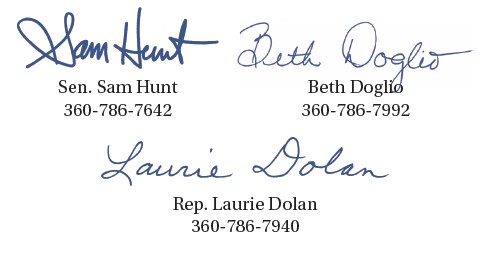 Sam Hunt Beth Doglio
Sen. Sam Hunt Beth Doglio
360-786-7642 360-786-7992
Laurie Dolan
Rep. Laurie Dolan
360-786-7940